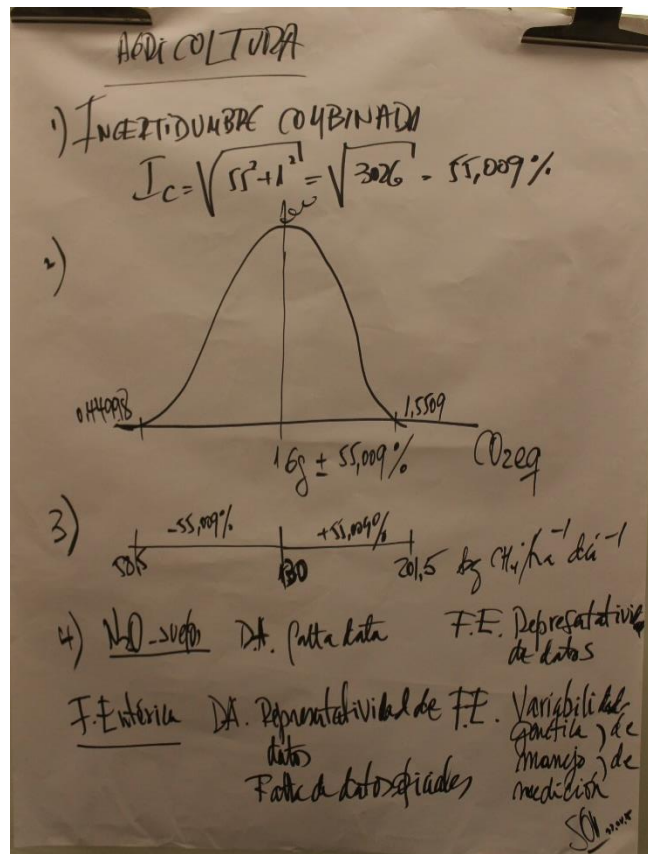 AGRICOLTURA
1) INCERTIDUMBRE COMBINADA
Ic = √55²+1² = √3026 - 55,009%
2)
0,44998
1,5509
1 Gg ± 55,009%
CO2eq
3) -55,009% +55,009%
58,5 130 201,5 kg CH4/ha⁻¹ día⁻¹
4) N2O-suelos D.A. falta data F.E. Representatividad de datos
F. Entérica DA. Representatividad de datos
Falta de datos oficiales
F.E. Variabilidad genética, de manejo, de medición